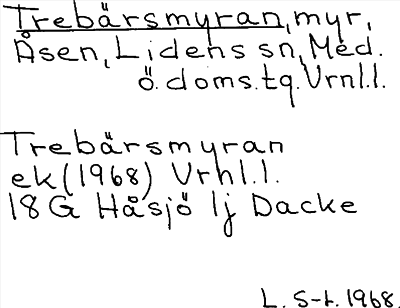 Trebärsmyran, myr,
Åsen, Lidens sn, Med.
ö. doms. tg. Vrnl.l.
Trebärsmyran
ek (1968) Vrhl.l.
18 G Håsjö 1j Dacke
L. S-t. 1968.